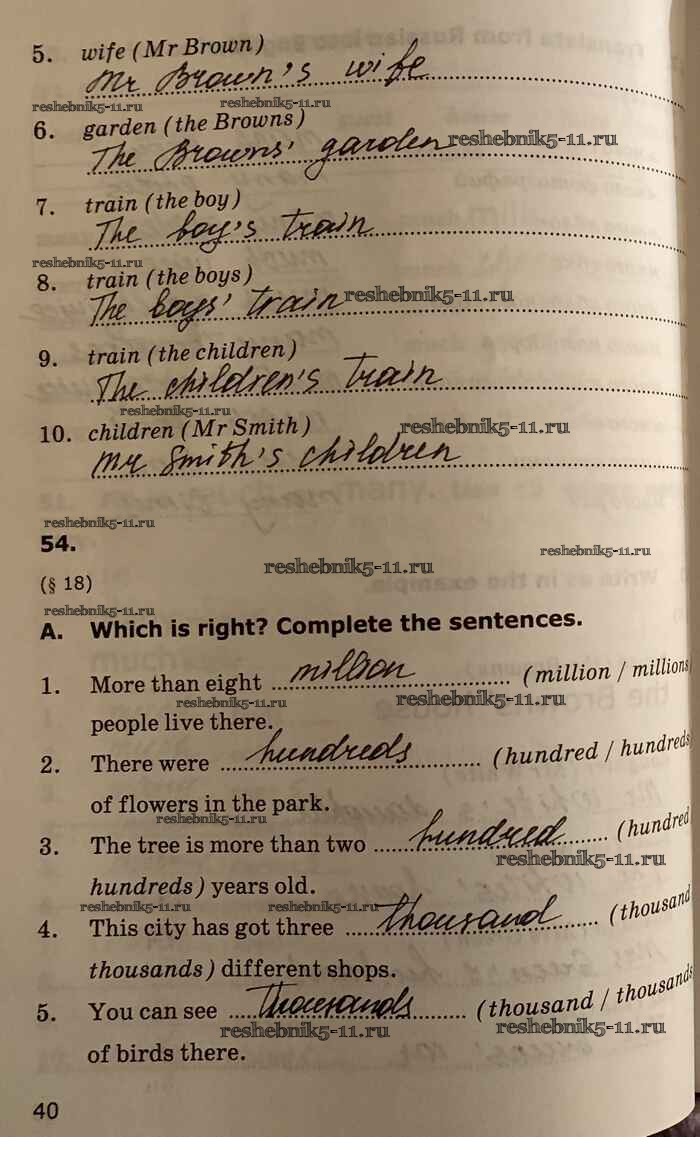 5. wife (Mr Brown)
Mr Brown's wife
reshebnik5-11.ru reshebnik5-11.ru
6. garden (the Browns)
The Browns' garden reshebnik5-11.ru
7. train (the boy)
The boy's train
reshebnik5-11.ru
8. train (the boys)
The boys' train reshebnik5-11.ru
9. train (the children)
The children's train
reshebnik5-11.ru
10. children (Mr Smith) reshebnik5-11.ru
Mr Smith's children
reshebnik5-11.ru
54. reshebnik5-11.ru
reshebnik5-11.ru
(§ 18)
reshebnik5-11.ru
A. Which is right? Complete the sentences.
1. More than eight million (million / millions)
reshebnik5-11.ru reshebnik5-11.ru
people live there.
2. There were hundreds (hundred / hundreds
of flowers in the park.
reshebnik5-11.ru
3. The tree is more than two hundred (hundred
reshebnik5-11.ru
hundreds) years old.
reshebnik5-11.ru reshebnik5-11.ru
4. This city has got three thousand (thousand
thousands) different shops.
5. You can see thousands (thousand / thousands
reshebnik5-11.ru reshebnik5-11.ru
of birds there.
40